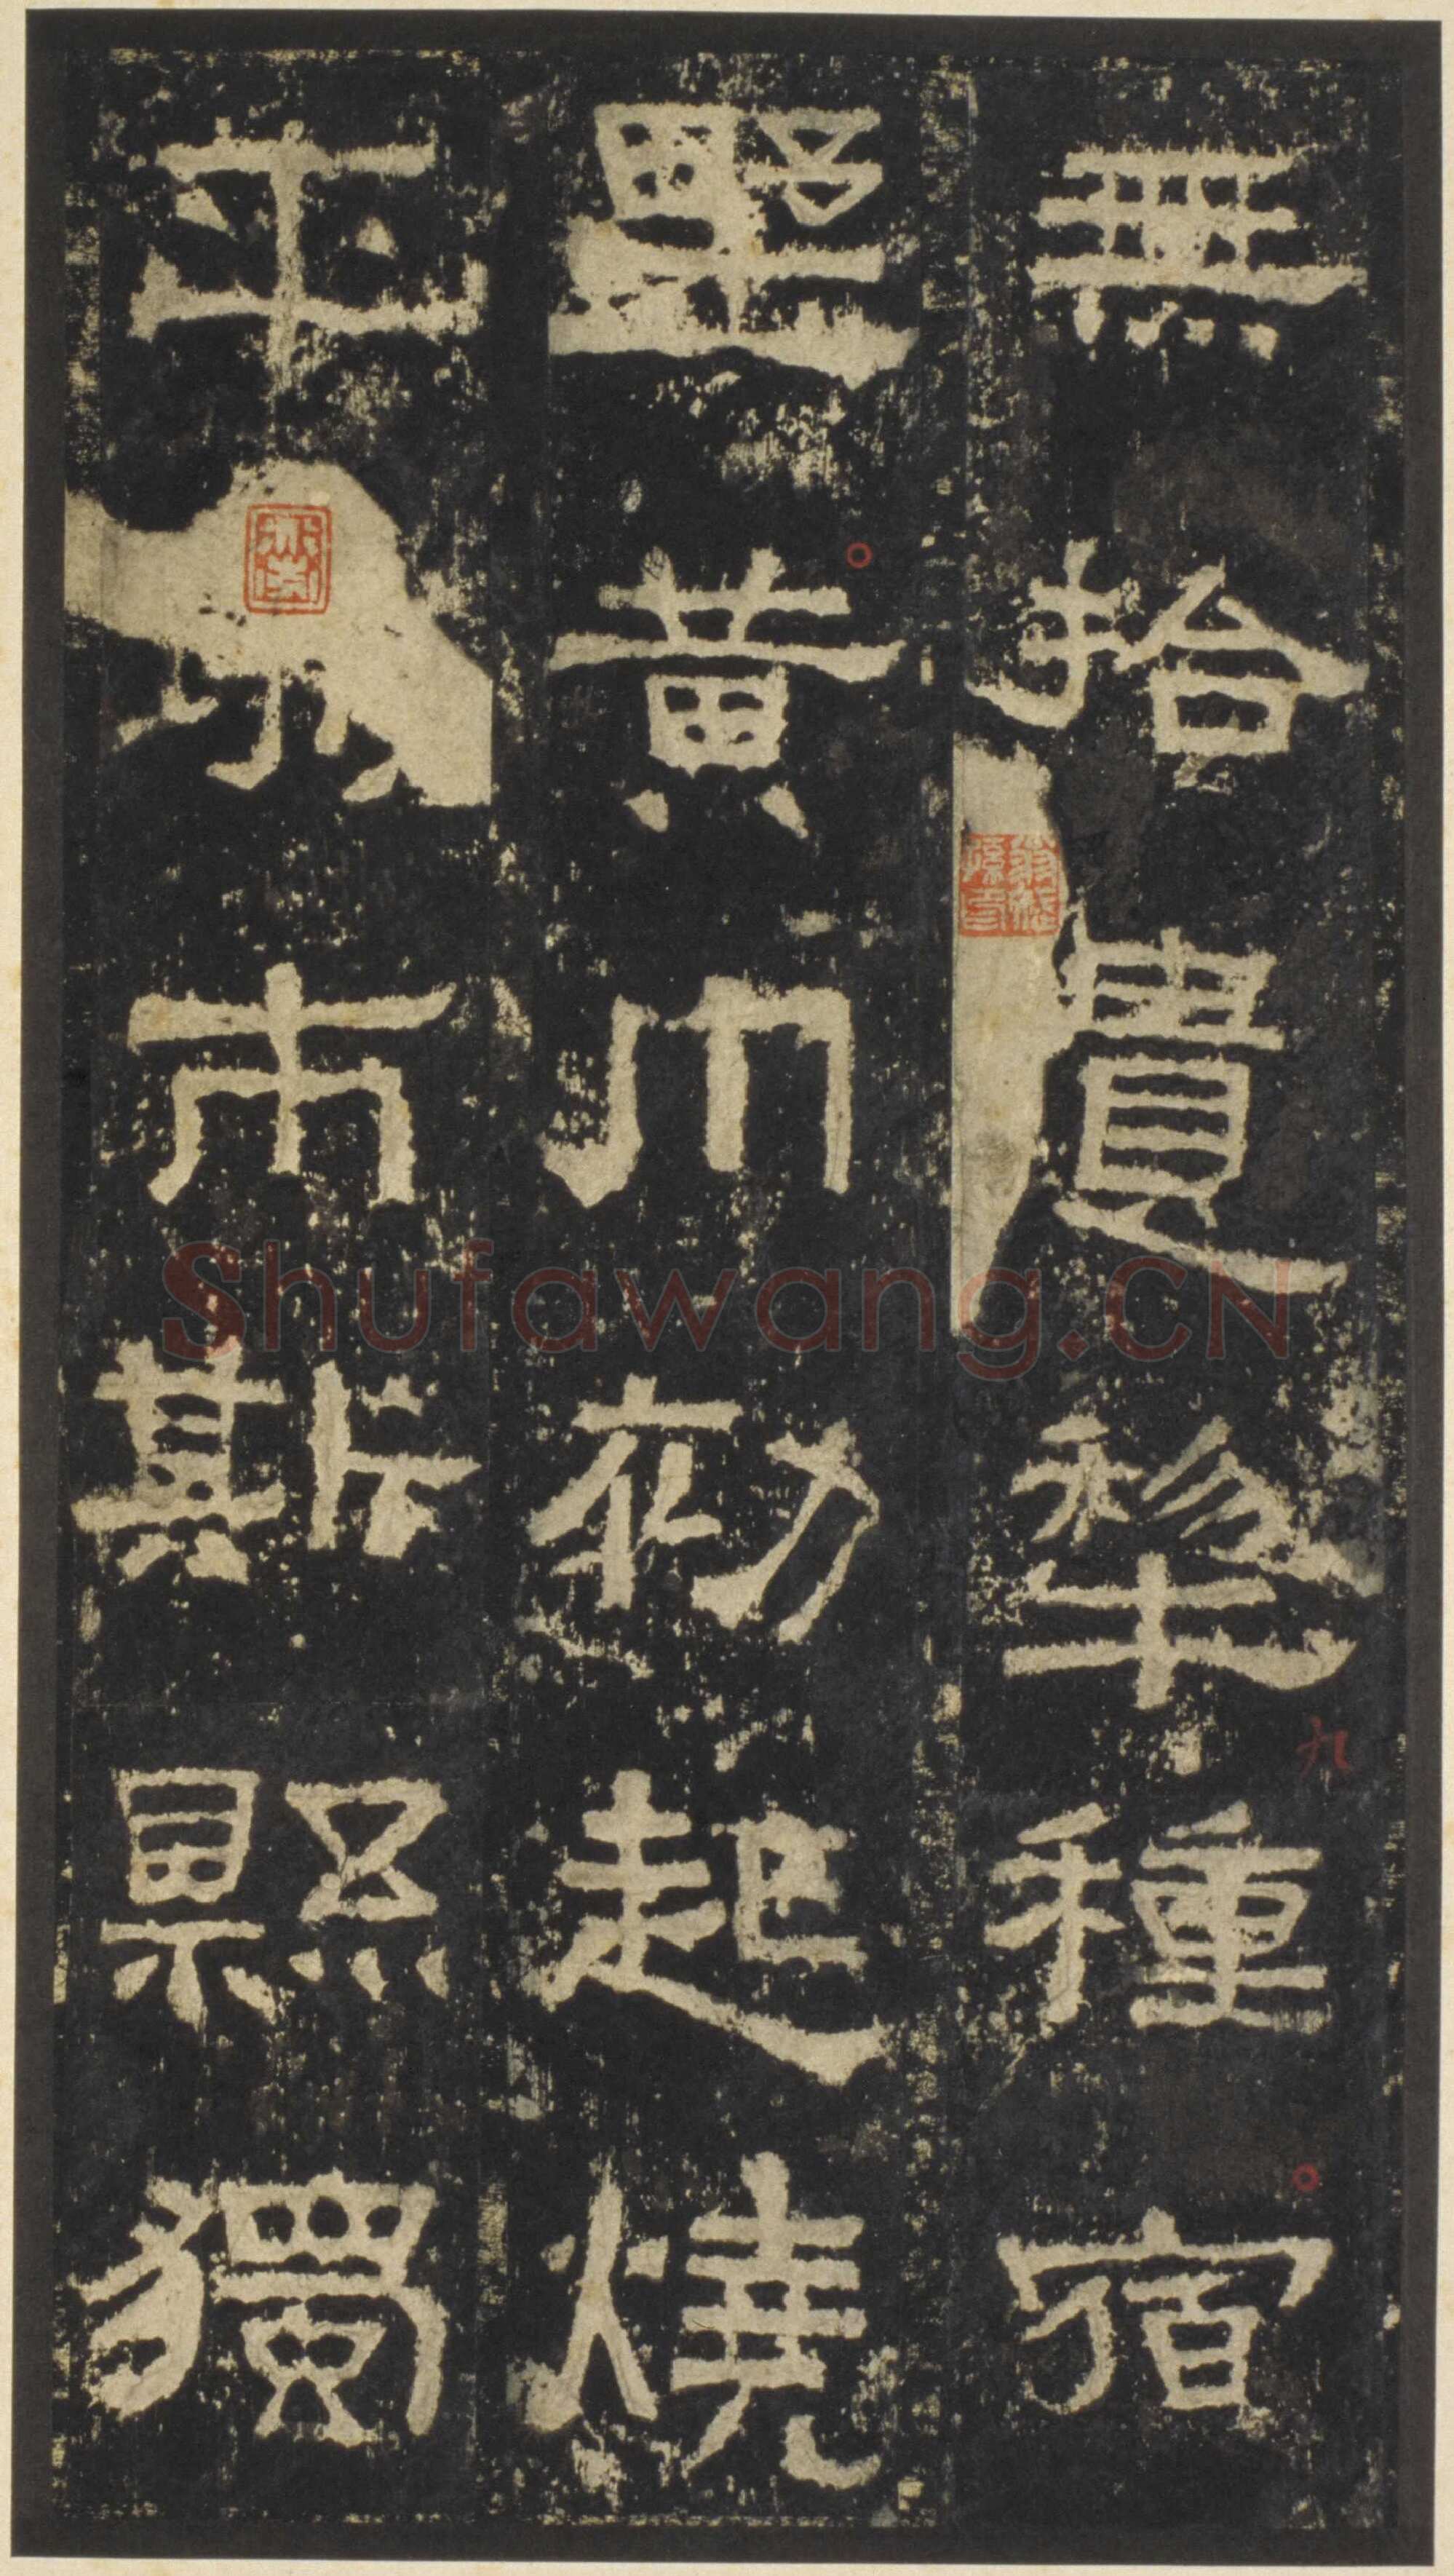 無拾遺犂種宿
野黃巾初起燒
平市斯縣獨
九
Shufawang.CN